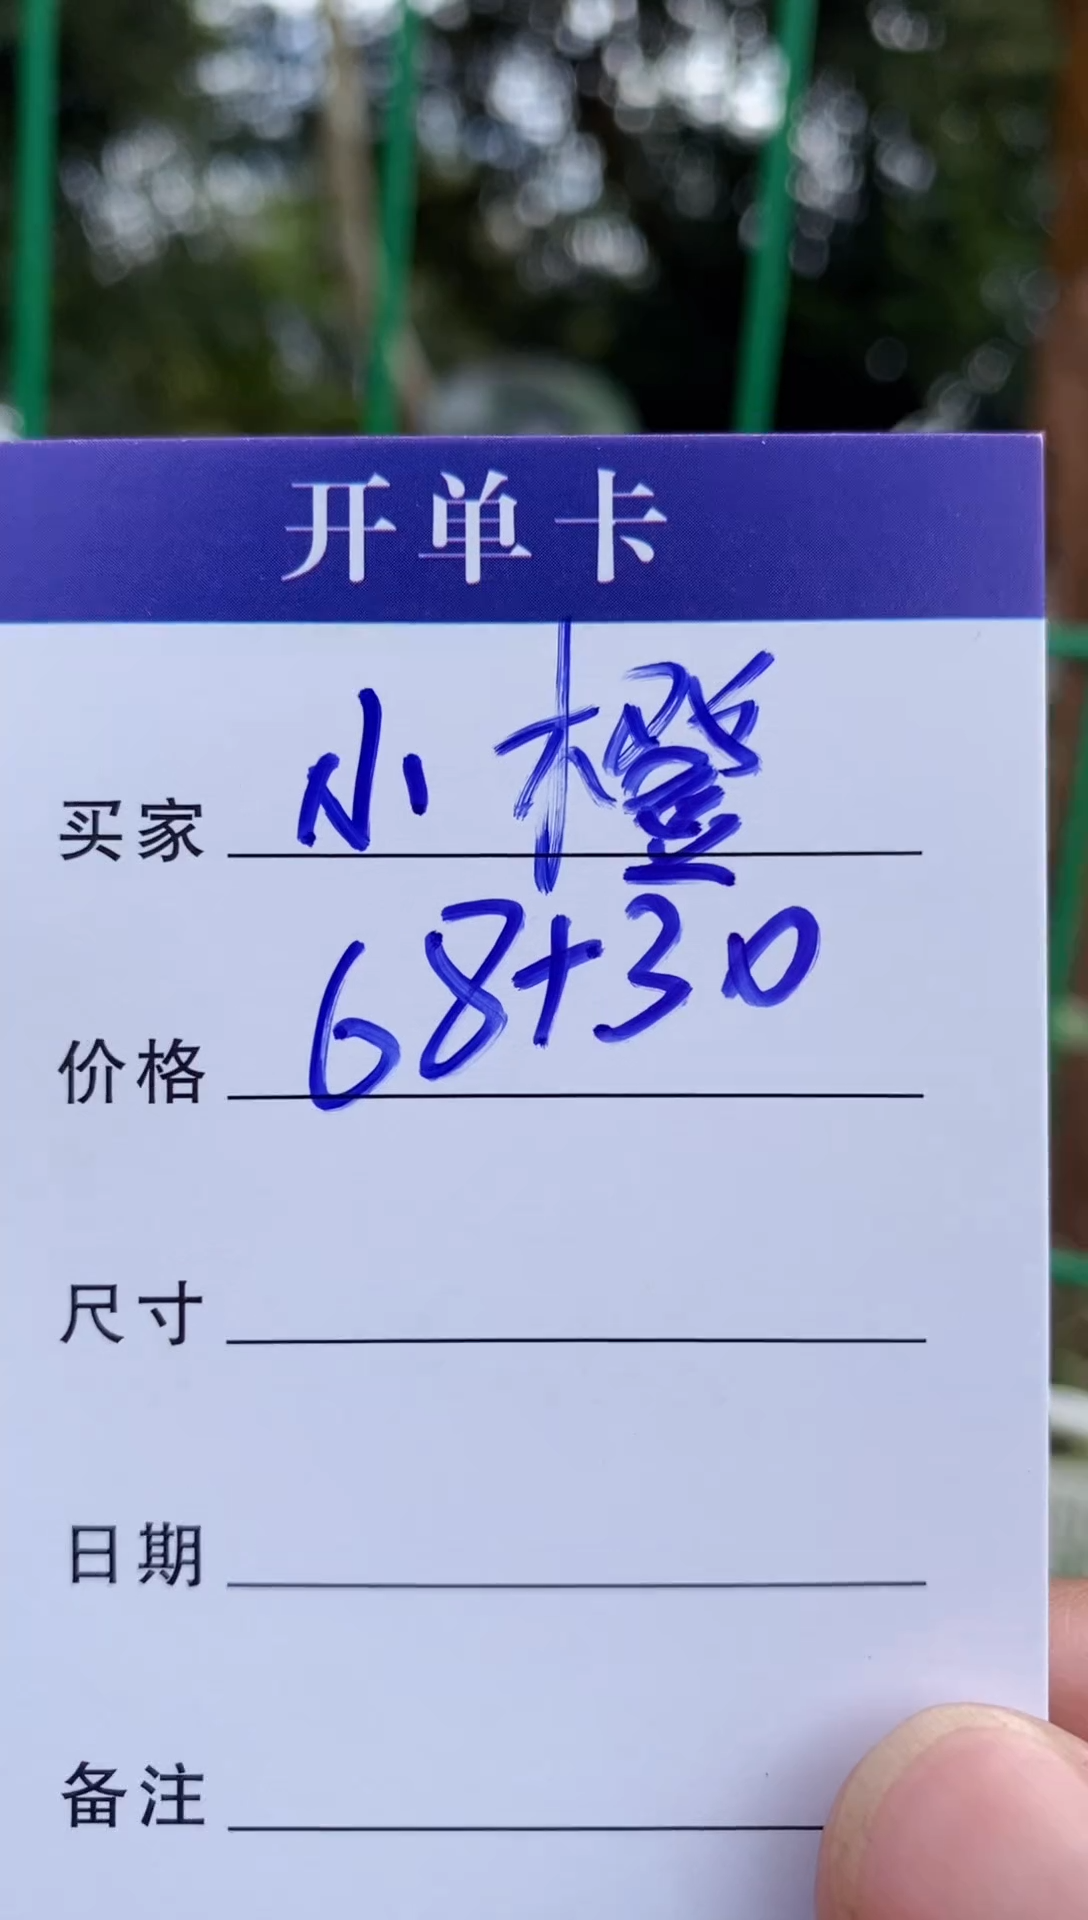 开单卡
买家 小橙
价格 68+30
尺寸
日期
备注